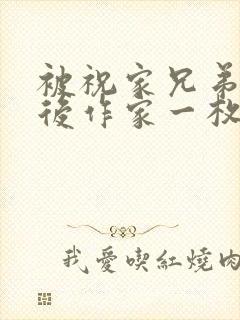 被祝家兄弟
後作家一枚
我愛喫紅燒肉